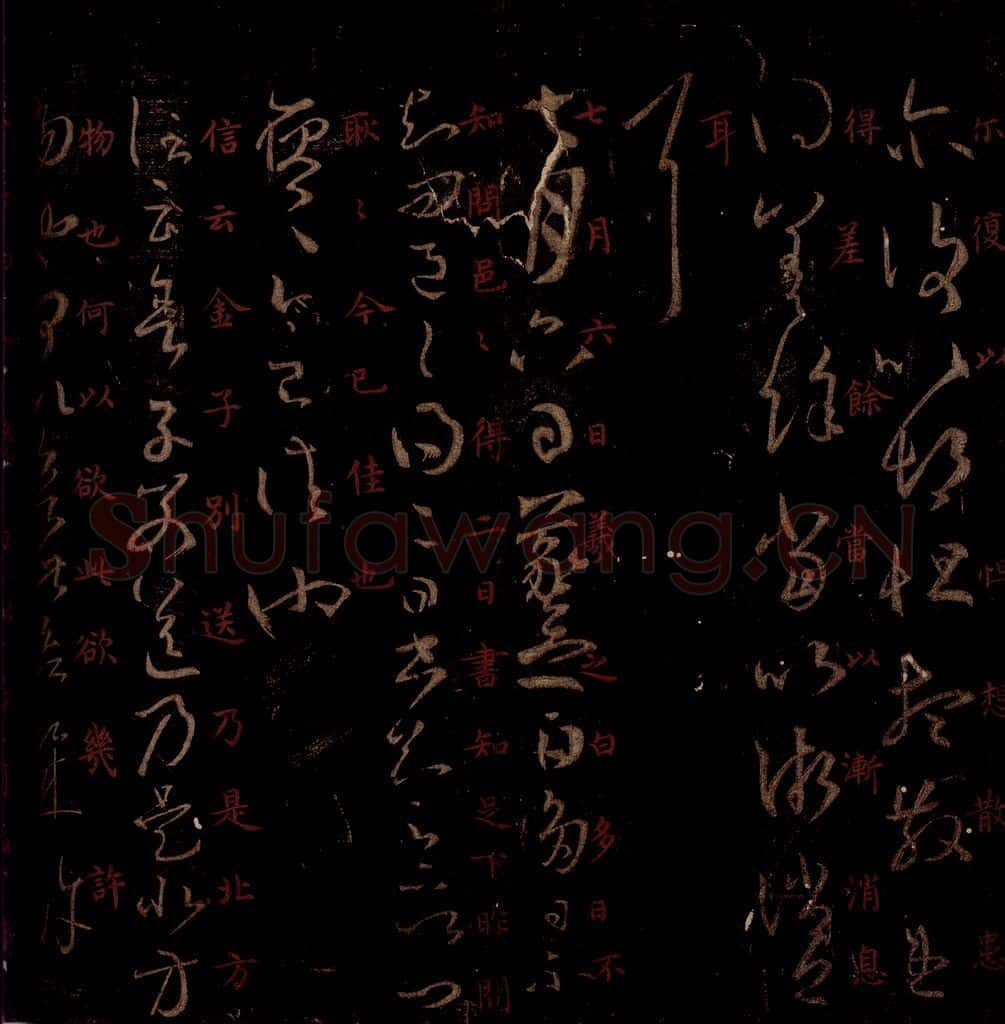 尔復以怛想散患
得差餘當以漸消息
耳
七月六日羲之白多日不
知問邑〻得二日書知足下昨問
耿〻今已佳也
信云金子別送乃是北方
物也何以欲此欲幾許
Shufawang.CN